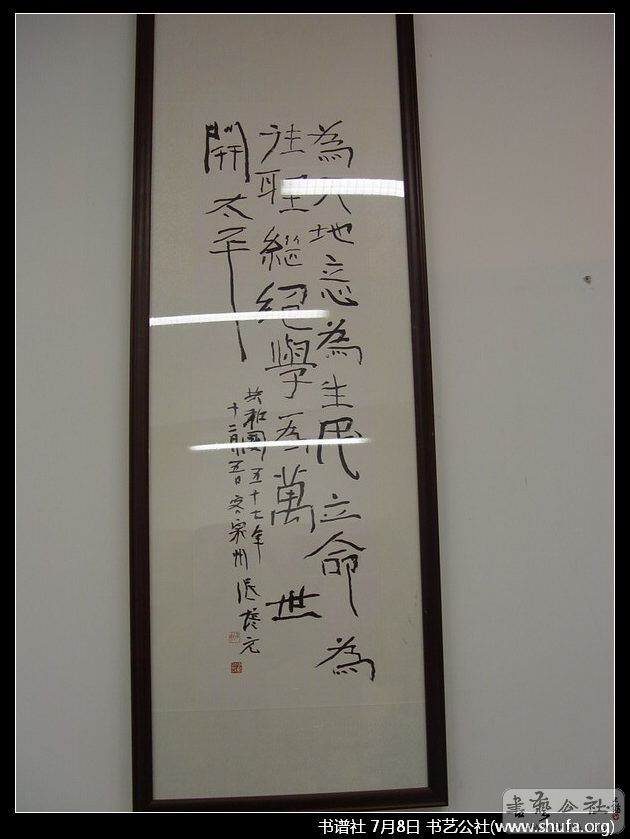 為天地立心為生民立命為
往聖繼絕學為萬世
開太平
共和國五十七年
十二月五日客
書藝公社
书谱社 7月8日 书艺公社(www.shufa.org)